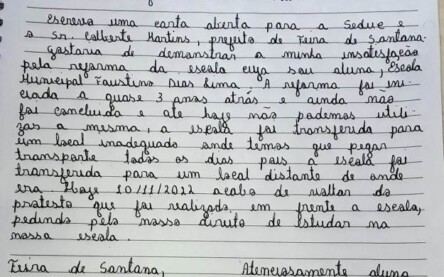 Escrevo uma carta aberta para a Seduc e
o Sr. Colberte Martins, prefeito de Feira de Santana.
Gostaria de demonstrar a minha insatisfação
pela reforma da escola cuja sou aluna, Escola
Municipal Faustino Dias Lima. A reforma foi ini-
ciada a quase 3 anos atrás e ainda não
foi concluída e até hoje não podemos utili-
zas a mesma, a escola foi transferida para
um local inadequado onde temos que pegar
transporte todos os dias pois a escola foi
transferida para um local distante de onde
era. Hoje 10/11/2022 acabo de voltar do
protesto que foi realizado, em frente a escola,
pedindo pelo nosso direito de estudar na
nossa escola.
Feira de Santana, Atenciosamente aluna